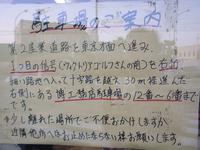 駐車場のご案内
第2産業道路を東京方面へ進み、
1つ目の信号(ヴィクトリアゴルフさんの角)を右折
細い路地へ入って十字路を越え30m程進んだ
右側にある 工務店駐車場の12番〜6番まで
です。
少し離れた場所でご不便おかけしますが
近隣他所へお止めにならない様お願いします。